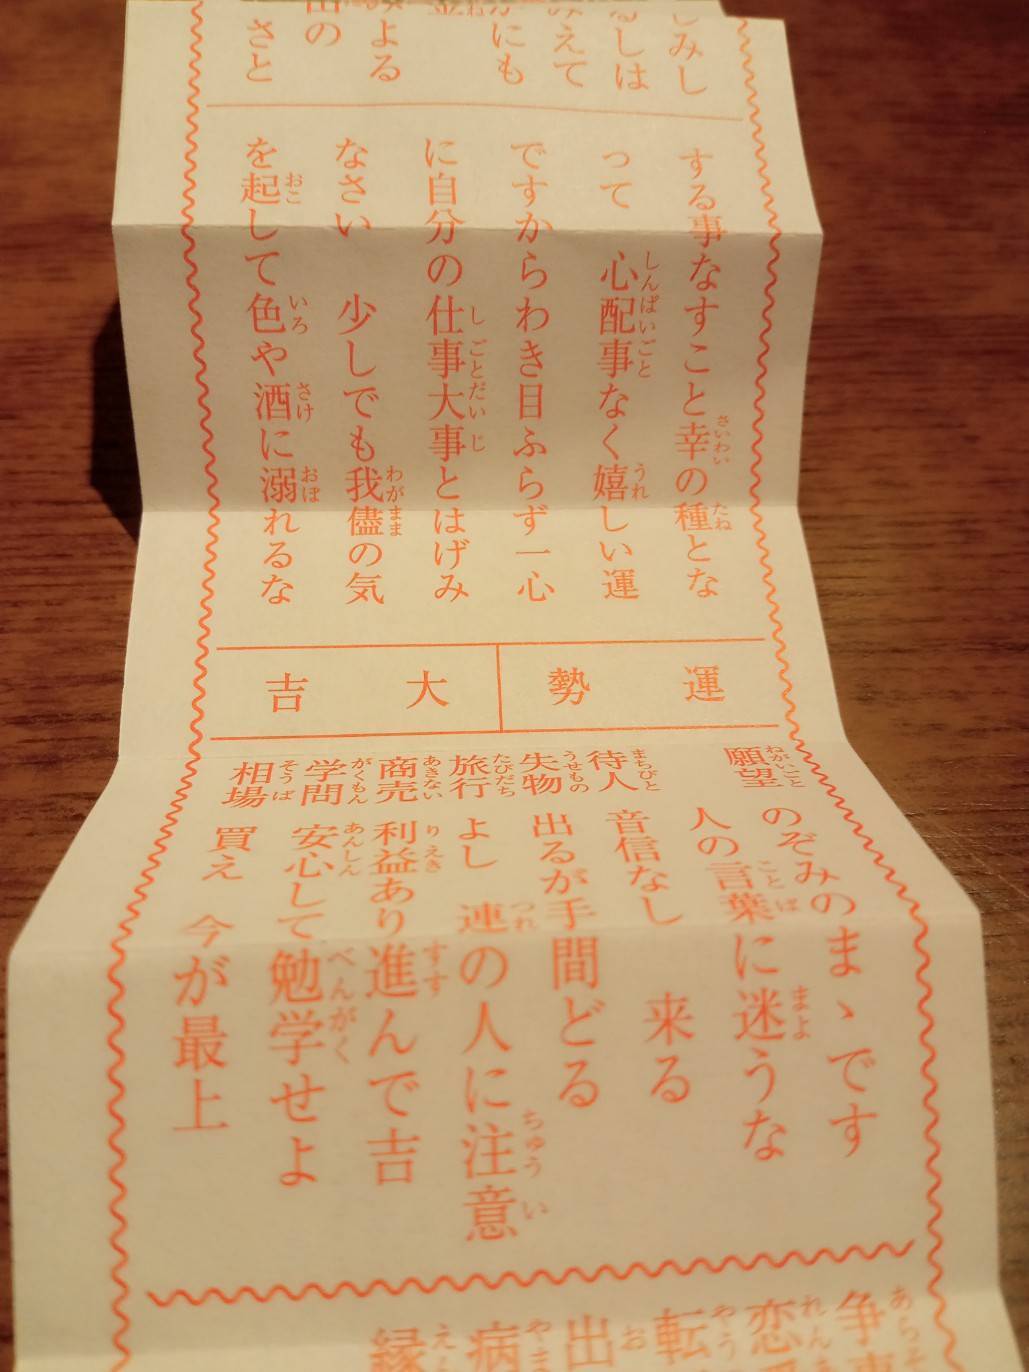 しみし
るしは
みえて
にも
よる
の
さと
する事なすこと幸の種とな
って　心配事なく嬉しい運
ですからわき目ふらず一心
に自分の仕事大事とはげみ
なさい　少しでも我儘の気
を起して色や酒に溺れるな
運勢　大吉
願望　のぞみのまゝです
人の言葉に迷うな
待人　音信なし　来る
失物　出るが手間どる
旅行　よし　連の人に注意
商売　利益あり進んで吉
学問　安心して勉学せよ
相場　買え　今が最上
争
恋
転
出
病
縁